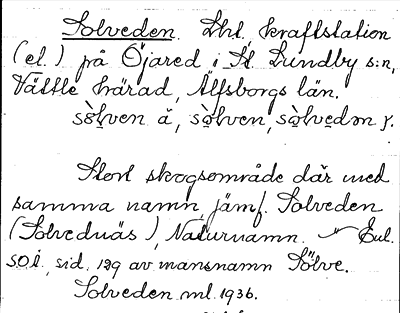 Solveden. Lht. kraftstation
(el.) på Öjared i St. Lundby s:n,
Vättle härad, Älfsborgs län.
sòlven ä, sòlven, sòlvedən f.
Stort skogsområde där med
samma namn, jämf. Solveden
(Solvednäs), Naturnamn. Enl.
SOÄ, sid. 129 av mansnamn Sölve.
Solveden ml. 1936.